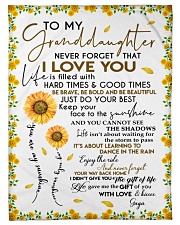 TO MY
Granddaughter
NEVER FORGET THAT
I LOVE YOU
Life is filled with
HARD TIMES & GOOD TIMES
BE BRAVE, BE BOLD AND BE BEAUTIFUL
JUST DO YOUR BEST
Keep your
face to the sunshine
AND YOU CANNOT SEE
THE SHADOWS
Life isn't about waiting for
the storm to pass
IT'S ABOUT LEARNING TO
DANCE IN THE RAIN
Enjoy the ride
And never forget
YOUR WAY BACK HOME
I DIDN'T GIVE YOU the gift of life
Life gave me the GIFT OF YOU
WITH LOVE &
you are my sunshine